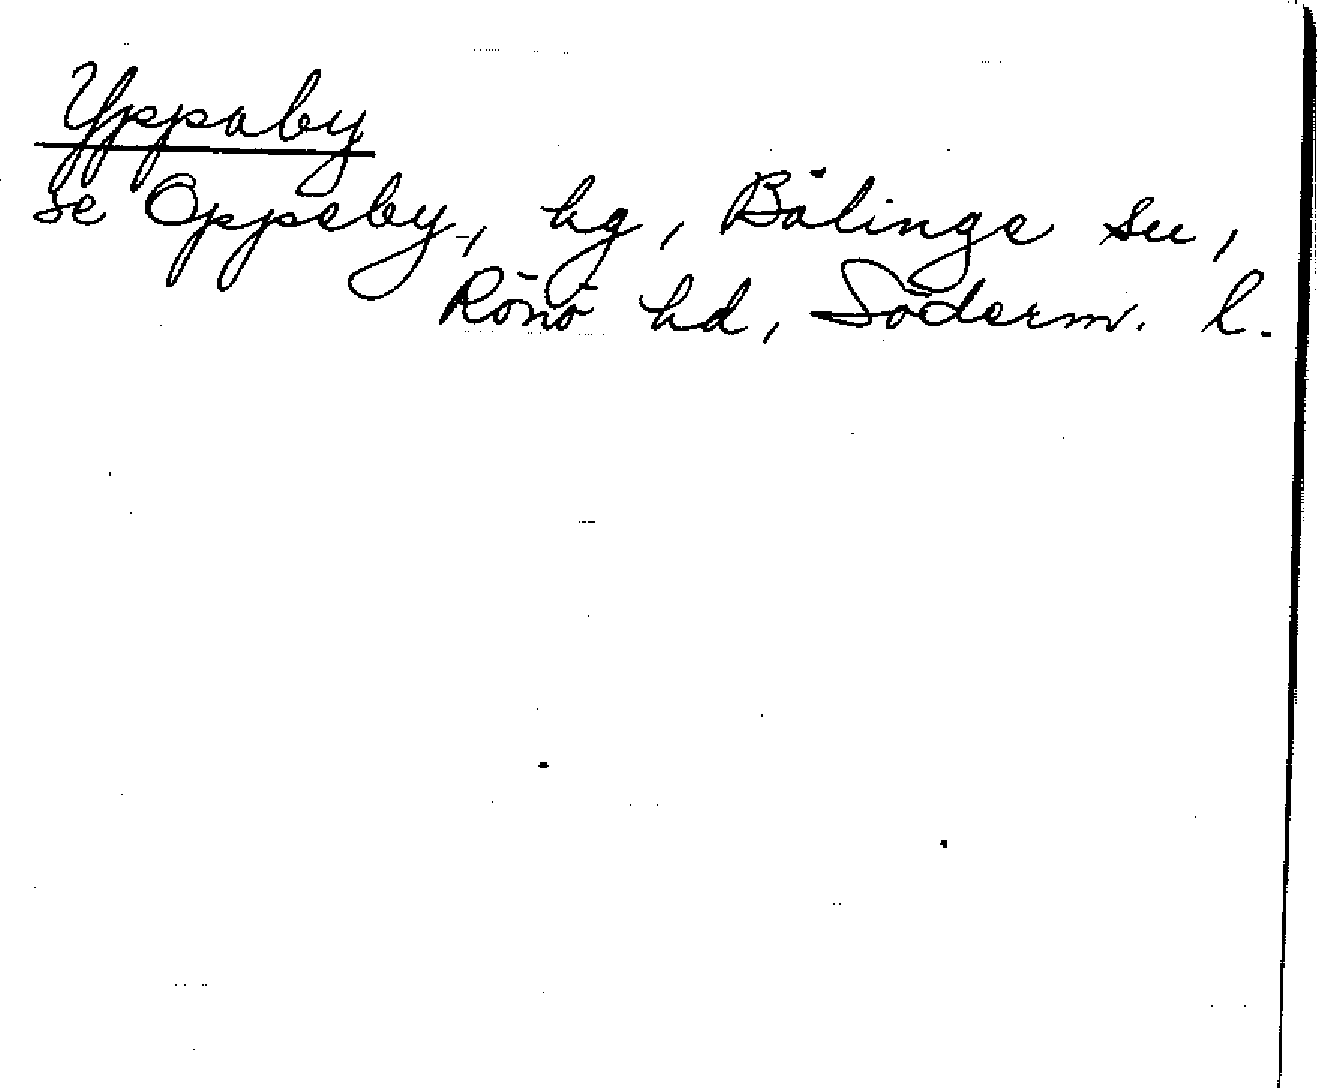 Yppaby
se Oppeby, hg, Bälinge sn,
Rönö hd, Söderm. l.